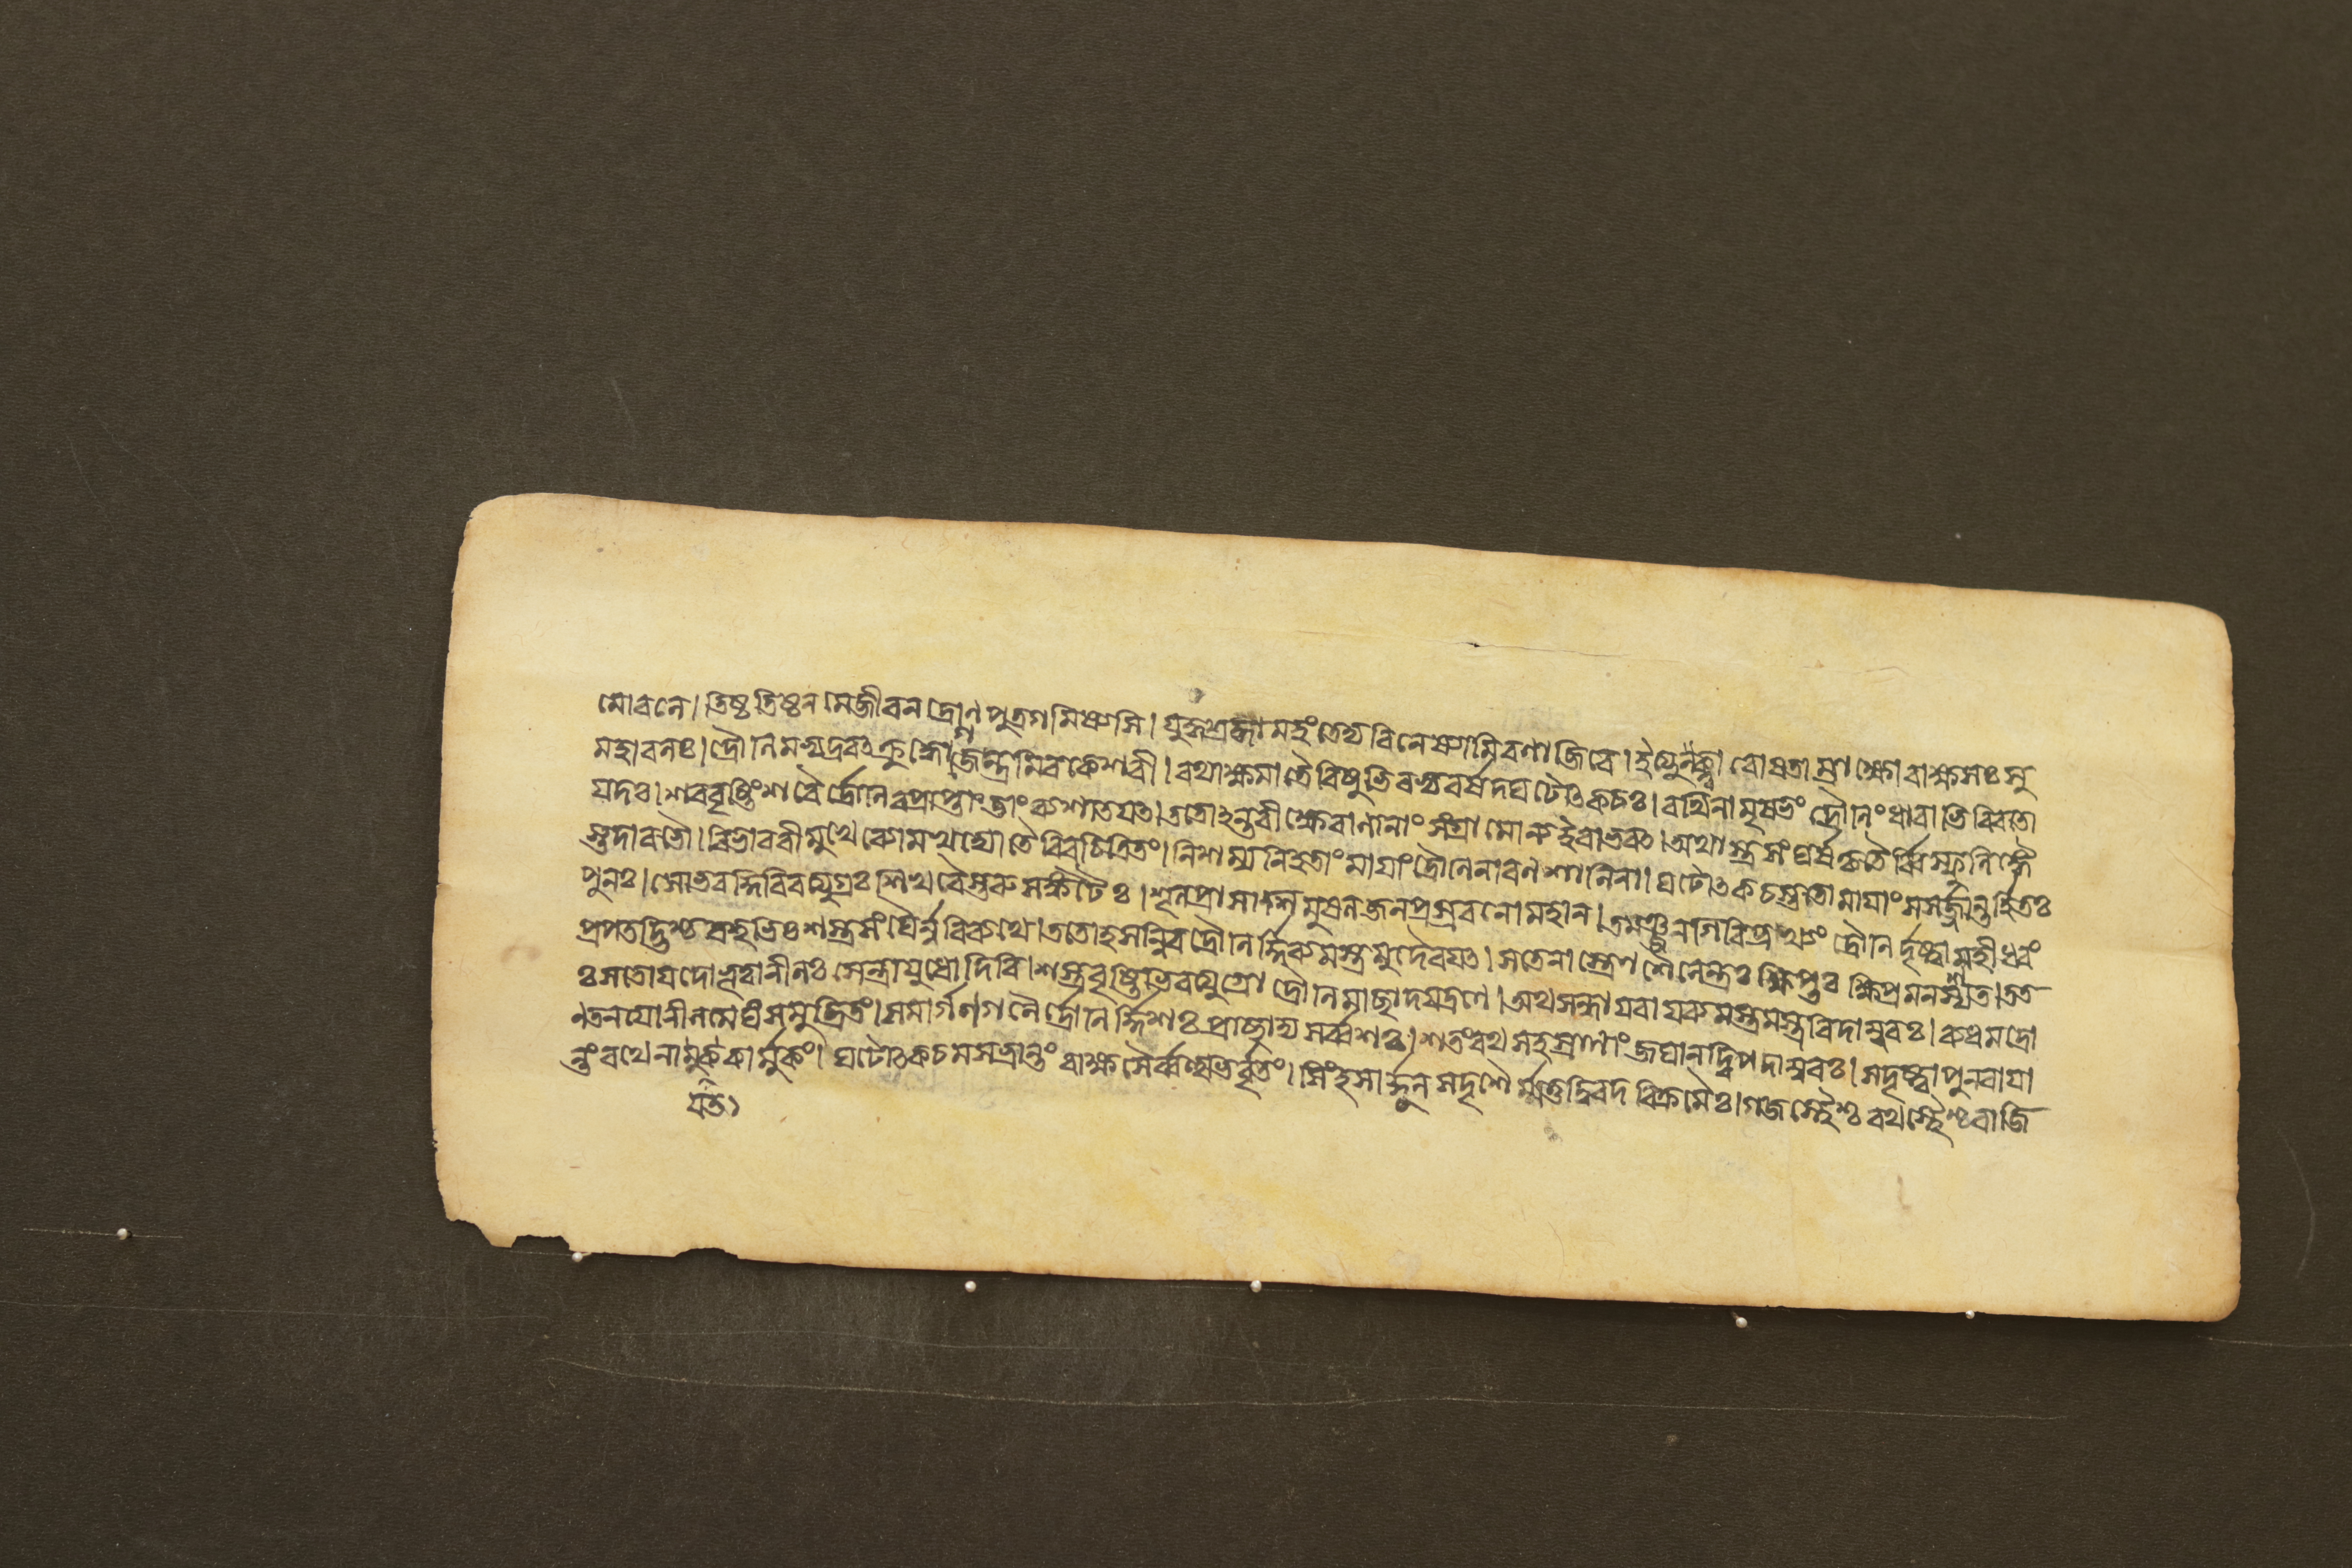 মোরনে। তিষ্ঠ তিষ্ঠ ন মে জীবন দ্রোনপুত্র গমিষ্যসি। যুদ্ধশ্রদ্ধামহং তেদ্য বিনেষ্যামি রণাজিরে। ইত্যুক্ত্বা রোষতাম্রাক্ষো রাক্ষসঃ সু
মহাবলঃ। দ্রৌনিমভ্যদ্রবৎ ক্রুদ্ধো গজেন্দ্রমিব কেশরী। রথাক্ষমাত্রৈরিষুভিরভ্যবর্ষদঘটোৎকচঃ। রথিনামৃষভং দ্রৌনিং ধারাভিরিব তো
যদঃ। শরবৃষ্টিং শরৈর্দ্রৌনিরপ্রাপ্তাং তাং ব্যশাতযত। ততোহন্তরীক্ষে বাণানাং সংগ্রামোন্য ইবাভবৎ। অথাস্ত্রসংঘর্ষকৃতৈর্ব্বিস্ফুলিঙ্গৈ
স্তদা বভৌ। বিভাবরীমুখে ব্যোম খদ্যোতৈরিব চিত্রিতং। নিশম্য নিহতাং মাযাং দ্রৌনিনা রনশালিনা। ঘটোৎকচস্ততো মাযাং সসর্জ্জান্তর্হিতঃ
পুনঃ। সোভবদ্গিরিরত্যুগ্রঃ শিখরৈস্তরুসঙ্কটৈঃ। শূলপ্রাসাসিমুষলজলপ্রস্রবনো মহান। তমঞ্জনগিরিপ্রখ্যং দ্রৌনির্দৃষ্ট্বা মহীধরং
প্রপতদ্ভিশ্চ বহুভিঃ শস্ত্রসংঘৈর্ন্ন বিব্যথে। ততো হসন্নিব দ্রৌনির্দ্দিব্যমস্ত্রমুদৈরযৎ। স তেনাস্ত্রেণ শৈলেন্দ্রঃ ক্ষিপ্তর ক্ষিপ্রমনশ্যত। তত
ঃ স তোযদো ভূত্বা নীলঃ সেন্দ্রাযুধো দিবি। শস্ত্রবৃষ্টিভিরত্যুগ্রো দ্রৌনিমাচ্ছাদযদ্রণে। অথ সন্ধায বাযব্যমস্ত্রমস্ত্রবিদাম্বরঃ। ব্যধমদ্রো
ণতনযো নীলমেঘং সমুত্থিতং। স মার্গণগনৈর্দ্রৌনির্দ্দিশঃ প্রাচ্ছাদ্য সর্ব্বশঃ। শতং রথসহস্রাণাং জঘান দ্বিপদাম্বরঃ। স দৃষ্ট্বা পুনরাযা
ন্তং রথেনাকার্মুকং। ঘটোৎকচমসভ্রান্তং রাক্ষসৈর্ব্বহুভির্বৃতং। সিংহসার্দ্দূলসদৃশৈর্ম্মত্তদ্বিরদবিক্রমৈঃ। গজস্থৈশ্চ রথস্থৈশ্চ বাজি
যত১